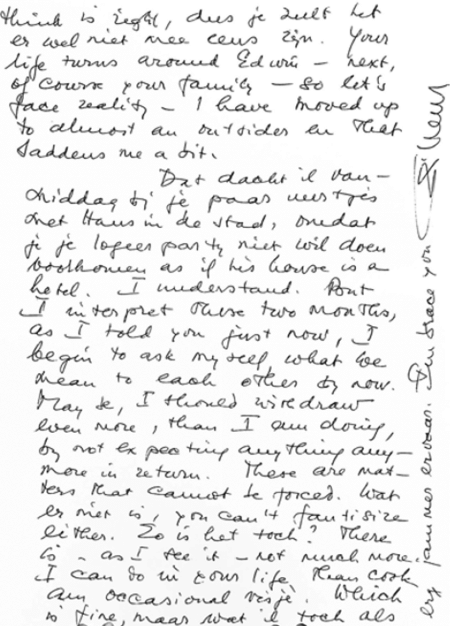 think is right, dus je zult het
er wel niet mee eens zijn. Your
life turns around Edwin - next,
of course your family - so let's
face reality - I have moved up
to almost an outsider en That
saddens me a bit.
Dat dacht ik van-
middag bij je paar uurtjes
met Hans in de stad, omdat
je je logeerpartij niet wil doen
voorkomen as if his house is a
hotel. I understand. But
I interpret these two months,
as I told you just now, I
begin to ask myself what we
mean to each other by now.
May be, I should withdraw
even more, than I am doing,
by not expecting anything any-
more in return. There are mat-
ters that cannot be forced. Wat
er niet is, you can't fantisize
either. Zo is het toch? There
is - as I see it - not much more
I can do in your life, than cook
an occasional visje. Which
is fine, maar wat ik toch als
erg jammer ervaar. I embrace you